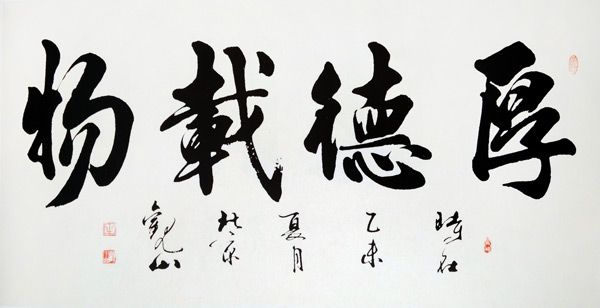 厚德載物
時在
乙未
夏月